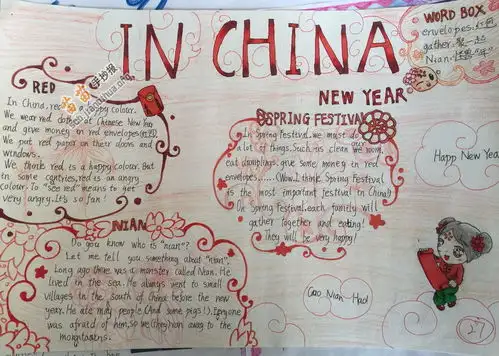 IN CHINA
WORD BOX
envelopes:红包
gather:聚一起
Nian:
NEW YEAR
RED
In China, red is a happy colour.
We wear red clothes at Chinese New Year
and give money in red envelopes(红包).
We put red paper on their doors and
windows.
We think red is a happy colour. But
in some centries, red is an angry
colour. To "see red" means to get
very angry. It's so fan!
SPRING FESTIVAL
In Spring festival, we must do
a lot of things. Such as clean we room,
eat dumplings, give some money in red
envelopes,......(Wow. I think Spring Festival
is the most important festival in China!)
On Spring Festival, each family will
gather together and eating!
They will be very happy!
Happy New Year
NIAN
Do you know who is "nian"?
Let me tell you something about "nian".
Long ago there was a monster called Nian. He
lived in the sea. He always went to small
villages in the south of China before the new
year. He ate many people (And some pigs!). Everyone
was afraid of him, so they ran away to the
mountains.
Guo Nian Hao!
27